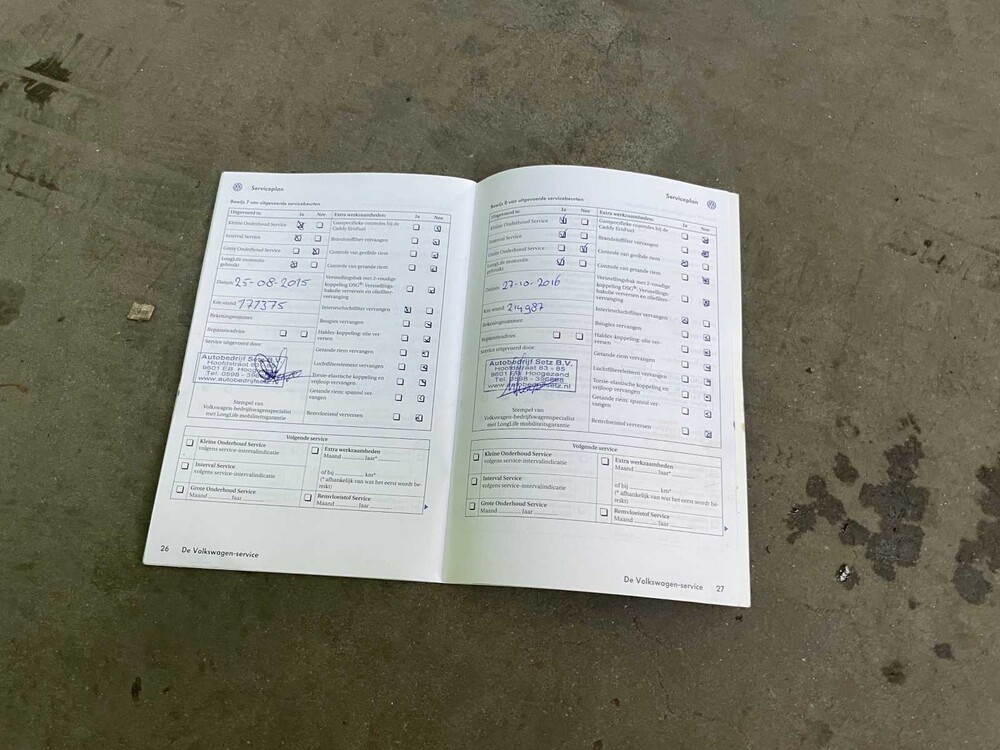 Serviceplan
Bewijs 7 van uitgevoerde servicebeurten
Uitgevoerd in: Ja Nee Extra werkzaamheden: Ja Nee
Kleine Onderhoud Service
Interval Service
Grote Onderhoud Service
LongLife motorolie
gebruikt
Datum 25-08-2015
Km-stand 177375
Rekeningnummer
Reparatieadvies
Service uitgevoerd door:
Autobedrijf Setz B.V.
Hoofdstraat 83
9601 EB Hoogezand
Tel. 0598 -
www.autobedrijfsetz.nl
Stempel van
Volkswagen-bedrijfswagenspecialist
met LongLife mobiliteitsgarantie
Gasspecifieke controles bij de
Caddy EcoFuel
Brandstoffilter vervangen
Controle van geribde riem
Controle van getande riem
Versnellingsbak met 2-voudige
koppeling DSG®: Versnellings-
bakolie verversen en oliefilter-
vervanging
Interieurschilfilter vervangen
Bougies vervangen
Haldex-koppeling: olie ver-
versen
Getande riem vervangen
Luchtfilterelement vervangen
Torsie-elastische koppeling en
vrijloop vervangen
Getande riem: spanrol ver-
vangen
Remvloeistof verversen
Volgende service
Kleine Onderhoud Service
volgens service-intervalindicatie
Interval Service
volgens service-intervalindicatie
Grote Onderhoud Service
Maand ........ Jaar ........
Extra werkzaamheden
Maand ........ Jaar*
of bij ........ km*
(* afhankelijk van wat het eerst wordt be-
reikt)
Remvloeistof Service
Maand ........ Jaar ........
26 De Volkswagen-service
Serviceplan
Bewijs 8 van uitgevoerde servicebeurten
Uitgevoerd in: Ja Nee Extra werkzaamheden: Ja Nee
Kleine Onderhoud Service
Interval Service
Grote Onderhoud Service
LongLife motorolie
gebruikt
Datum 27-10-2016
Km-stand 214987
Rekeningnummer
Reparatieadvies
Service uitgevoerd door:
Autobedrijf Setz B.V.
Hoofdstraat 83 - 85
9601 EB Hoogezand
Tel. 0598 -
www.autobedrijfsetz.nl
Stempel van
Volkswagen-bedrijfswagenspecialist
met LongLife mobiliteitsgarantie
Gasspecifieke controles bij de
Caddy EcoFuel
Brandstoffilter vervangen
Controle van geribde riem
Controle van getande riem
Versnellingsbak met 2-voudige
koppeling DSG®: Versnellings-
bakolie verversen en oliefilter-
vervanging
Interieurschilfilter vervangen
Bougies vervangen
Haldex-koppeling: olie ver-
versen
Getande riem vervangen
Luchtfilterelement vervangen
Torsie-elastische koppeling en
vrijloop vervangen
Getande riem: spanrol ver-
vangen
Remvloeistof verversen
Volgende service
Kleine Onderhoud Service
volgens service-intervalindicatie
Interval Service
volgens service-intervalindicatie
Grote Onderhoud Service
Maand ........ Jaar ........
Extra werkzaamheden
Maand ........ Jaar*
of bij ........ km*
(* afhankelijk van wat het eerst wordt be-
reikt)
Remvloeistof Service
Maand ........ Jaar ........
De Volkswagen-service 27